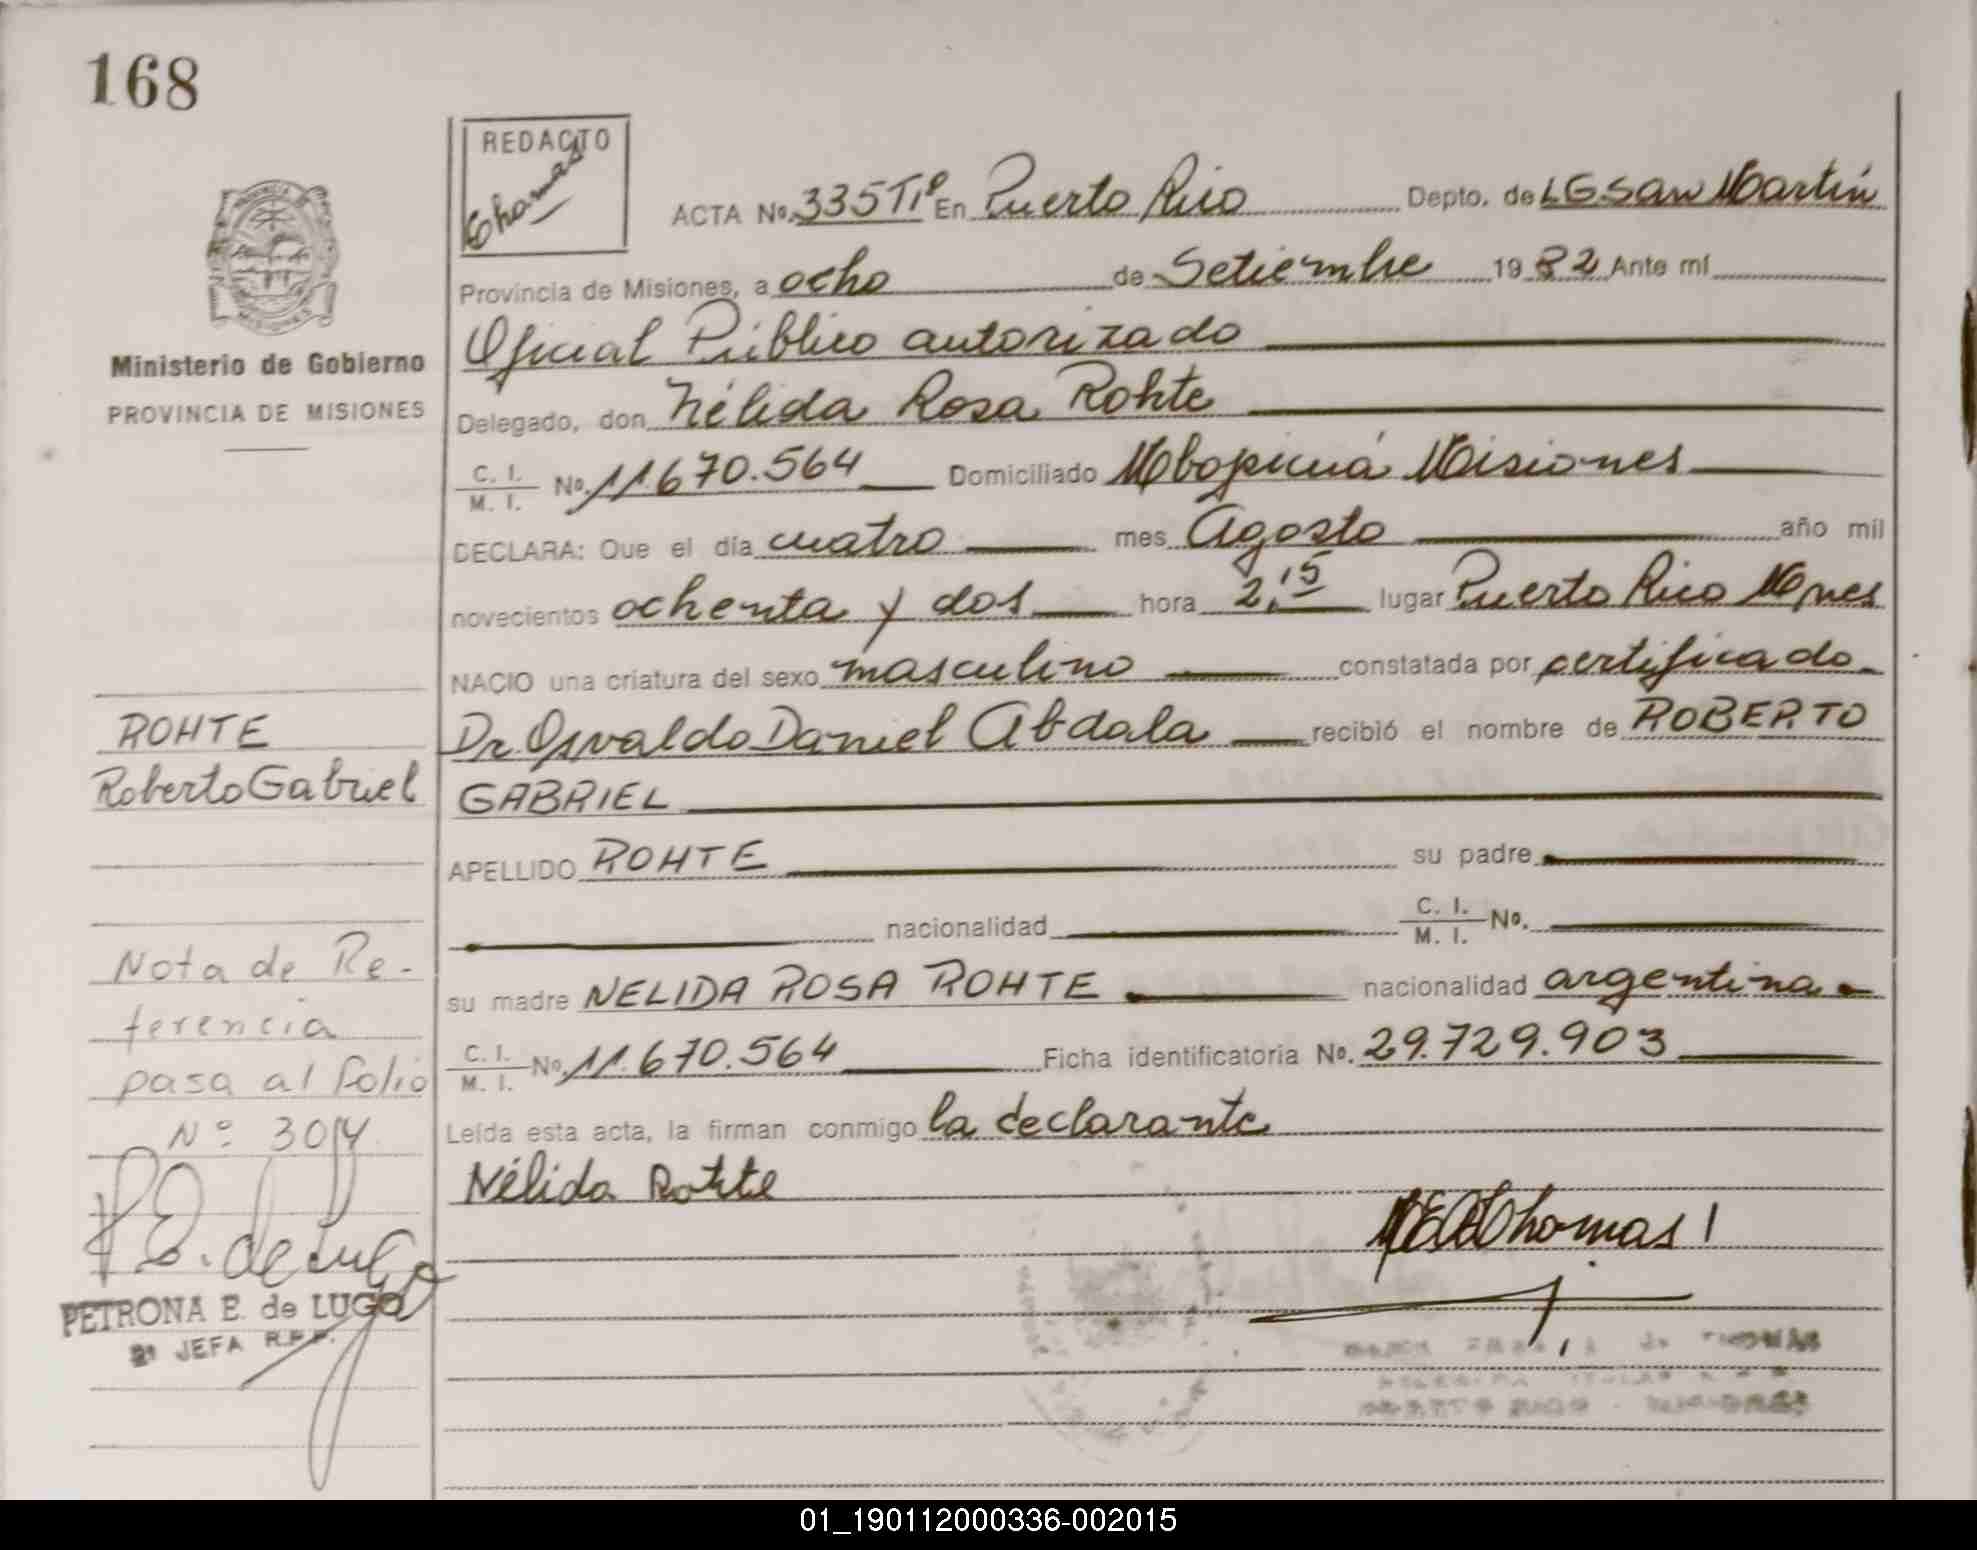 168
REDACTO
Thomas
ACTA No. 335 TIº En Puerto Rico Depto. de LG San Martín
Provincia de Misiones, a ocho de Setiembre 19 82 Ante mí
Oficial Público autorizado
Delegado, don Nélida Rosa Rohte
C. I. / M. I. No. 11.670.564 Domiciliado Mbopicuá Misiones
DECLARA: Que el día cuatro mes Agosto año mil
novecientos ochenta y dos hora 2,15 lugar Puerto Rico Mnes
NACIO una criatura del sexo masculino constatada por certificado
Dr Osvaldo Daniel Abdala recibió el nombre de ROBERTO
GABRIEL
APELLIDO ROHTE su padre
nacionalidad C. I. / M. I. No.
su madre NELIDA ROSA ROHTE nacionalidad argentina
C. I. / M. I. No. 11.670.564 Ficha identificatoria No. 29.729.903
Leída esta acta, la firman conmigo la declarante
Nélida Rohte
Thomas
PROVINCIA DE
MISIONES
Ministerio de Gobierno
PROVINCIA DE MISIONES
ROHTE
Roberto Gabriel
Nota de Re-
ferencia
pasa al folio
Nº
P E. de Lugo
PETRONA E. de LUGO
2ª JEFA R.P.P.
01_190112000336-002015